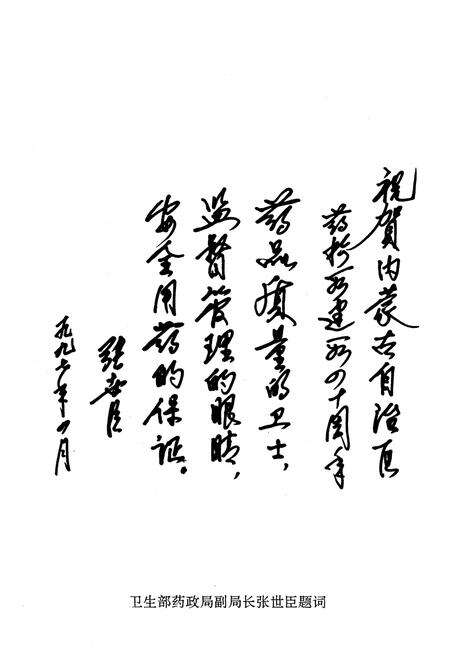 祝贺内蒙古自治区
药检所建所四十周年
药品质量的卫士，
监督管理的眼睛，
安全用药的保证。
张世臣
一九九年月
卫生部药政局副局长张世臣题词